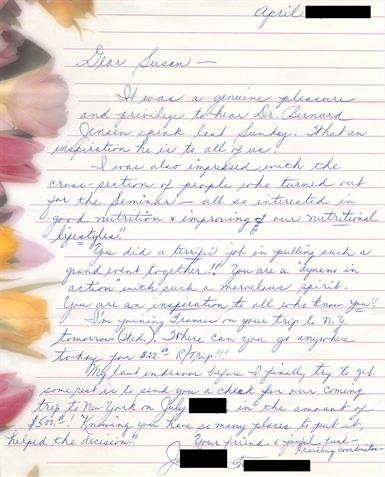 April
Dear Susan —
It was a genuine pleasure
and privilege to hear Dr. Bernard
Jensin speak last Sunday. What an
inspiration he is to all of us.
I was also impressed with the
cross-section of people who turned out
for the Seminar — all so interested in
good nutrition & improving of our nutritional
lifestyles!!
You did a terrific job in pulling such a
grand event together!! You are a "dynamo in
action" with such a marvelous spirit.
You are an inspiration to all who know you!
I'm joining Frances on your trip to N.Y.
tomorrow (Wed.). Where can you go anywhere
today for $22.00 R/Trip!!!
My last endeavor before I finally try to get
some rest is to send you a check for our coming
trip to New York on July in the amount of
$500.00! Knowing you have so many places to put it,
helped the decision!!
Your friend & joyful fund-
raising coordinator —